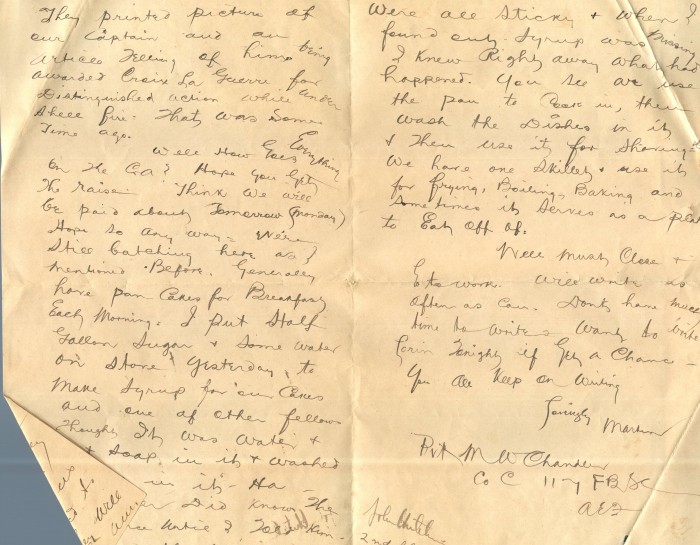 They printed picture of
our Captain and an
article telling of him being
awarded Croix La Guerre for
Distinguished action while under
shell fire. That was some
Time ago.
Well How Goes Everything
on the GA? Hope you get
The raise. Think we will
be paid about Tomorrow (Monday)
Hope so any way = We're
Still batching here as I
mentioned Before. Generally
have pan Cakes for Breakfast
Each Morning. I put Half
Gallon Sugar & Some Water
on Stove Yesterday, to
Make Syrup for our Cakes
and one of other fellows
Thought It was Water &
& Soap in it & washed
in it - Ha -
Did Know The
I Told him -
Were all Sticky & When I
found out Syrup was Missing
I Knew Right away what had
happened. You See we use
the pan to Cook in, then
Wash the Dishes in it
& Then use it for Shaving =
We have one Skillet & use it
for frying, Boiling, Baking and
Sometimes it Serves as a plate
to Eat off of.
Well Must Close &
to work. Will write as
often as Can. Dont have much
time to write Want to write
Tonight if Get a Chance -
You all Keep on Writing
Lovingly Martin
Pvt M W Chandler
Co C 117 F B SC
AEF
will
2nd